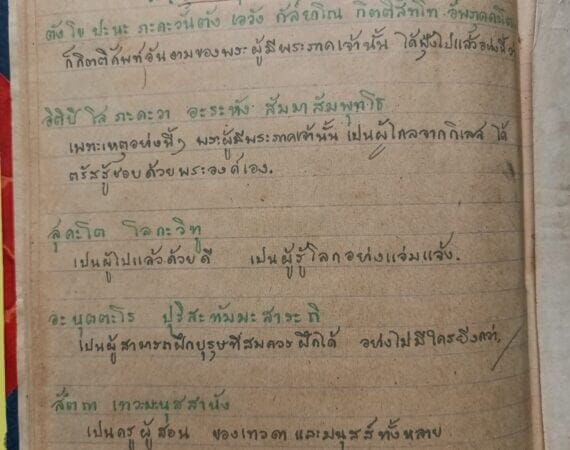 ตัง โข ปะนะ ภะคะวันตัง เอวัง กัล๎ยาโณ กิตติสัทโท อัพภุคคะโต
ก็กิตติศัพท์อันงามของพระผู้มีพระภาคเจ้านั้น ได้ฟุ้งไปแล้วอย่างนี้ว่า
อิติปิ โส ภะคะวา อะระหัง สัมมาสัมพุทโธ
เพราะเหตุอย่างนี้ๆ พระผู้มีพระภาคเจ้านั้น เป็นผู้ไกลจากกิเลส ได้
ตรัสรู้ชอบด้วยพระองค์เอง.
สุคะโต โลกะวิทู
เป็นผู้ไปแล้วด้วยดี เป็นผู้รู้โลกอย่างแจ่มแจ้ง.
อะนุตตะโร ปุริสะทัมมะสาระถิ
เป็นผู้สามารถฝึกบุรุษที่สมควรฝึกได้ อย่างไม่มีใครยิ่งกว่า.
สัตถา เทวะมะนุสสานัง
เป็นครูผู้สอน ของเทวดา และมนุษย์ทั้งหลาย